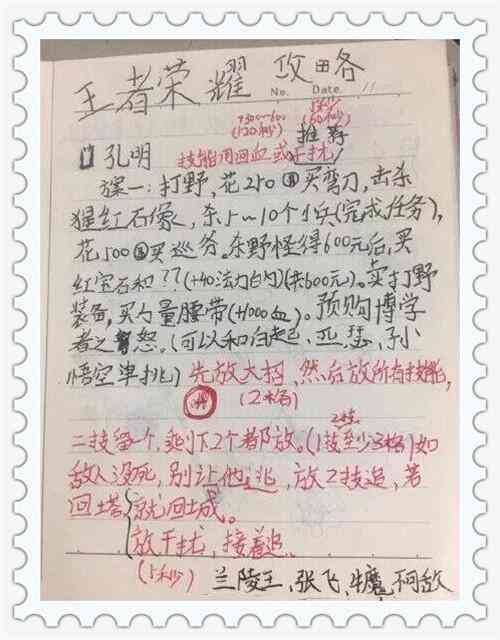 王者荣耀 攻略
No. Date.
+300~600 至少
(120秒) (60秒)
推荐
1 孔明 技能用回血或干扰
方案一:打野,花250买弯刀,击杀
猩红石像,杀5~10个小兵(完成任务),
花500买巡务。杀野怪得600元后,买
红宝石和??(+40法力)(共600元)。卖打野
装备,买力量腰带(+1000血)。预购博学
者之怒。(可以和白起、亚瑟、孙
悟空单挑)先放大招,然后放所有技能,
(2格)
二技留一个,剩下2个都放。(1技至少3格)如
敌人没死,别让他逃,放2技追,若
回塔,就回城。
放干扰,接着追
(5秒)
兰陵王、张飞、牛魔、不可敌